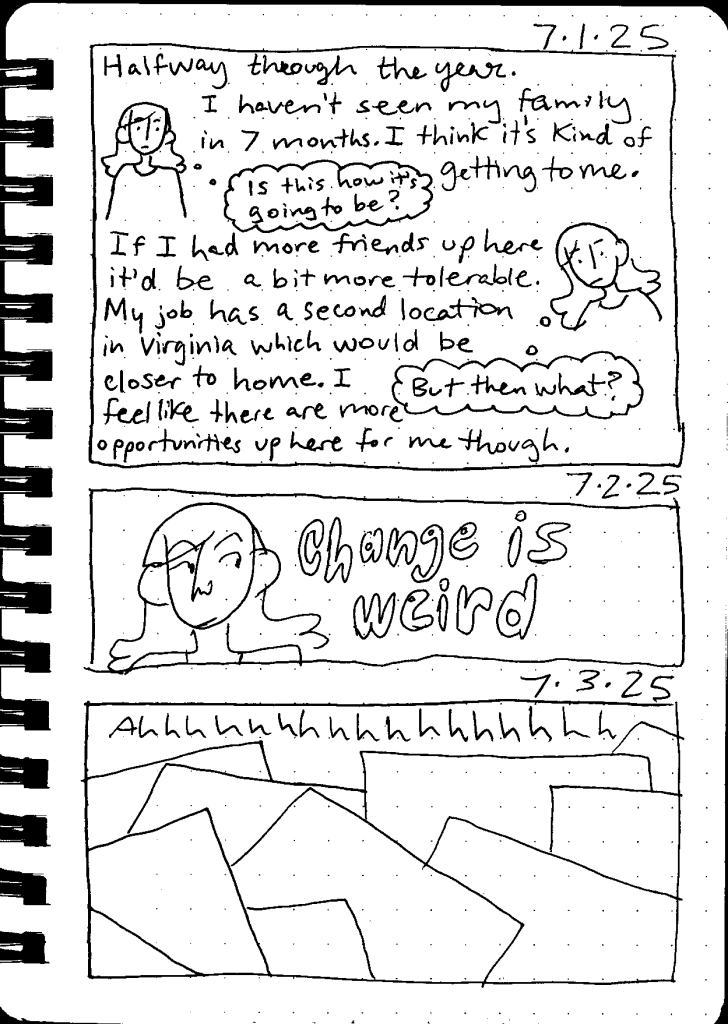 7.1.25
Halfway through the year.
I haven't seen my family
in 7 months. I think it's kind of
getting to me.
Is this how it's
going to be?
If I had more friends up here
it'd be a bit more tolerable.
My job has a second location
in Virginia which would be
closer to home. I
feel like there are more
opportunities up here for me though.
But then what?
7.2.25
Change is
weird
7.3.25
Ahhhhhhhhhhhhhhhhhh